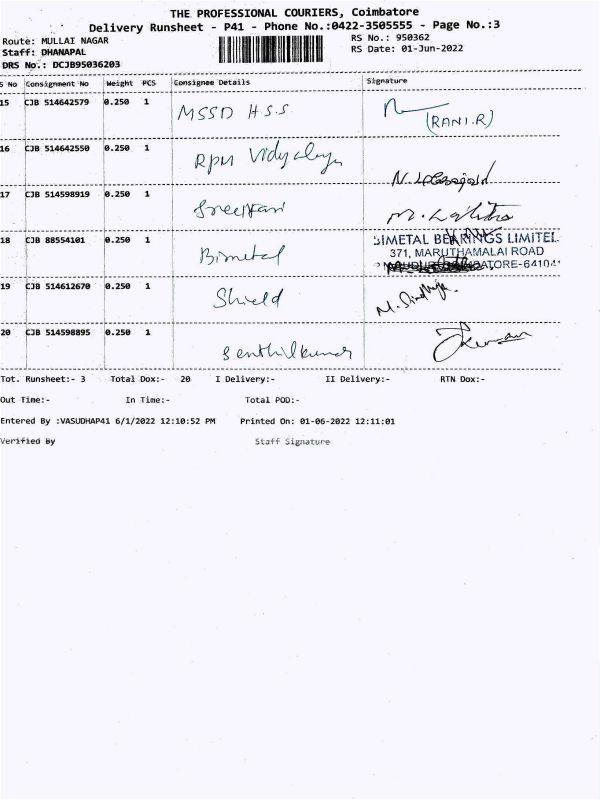 THE PROFESSIONAL COURIERS, Coimbatore
Delivery Runsheet - P41 - Phone No.:0422-3505555 - Page No.:3
Route: MULLAI NAGAR
RS No.: 950362
Staff: DHANAPAL
RS Date: 01-Jun-2022
DRS No.: DCJB95036203
S No Consignment No Weight PCS Consignee Details Signature
15 CJB 514642579 0.250 1 MSSD H.S.S.
(RANI.R)
16 CJB 514642550 0.250 1 RPM Vidyalaya
17 CJB 514598919 0.250 1 SreeHari
M. Lalitha
18 CJB 88554101 0.250 1 Bimetal
BIMETAL BEARINGS LIMITED
371, MARUTHAMALAI ROAD
19 CJB 514612670 0.250 1 Shield
20 CJB 514598895 0.250 1 Senthilkumar
Tot. Runsheet:- 3 Total Dox:- 20 I Delivery:- II Delivery:- RTN Dox:-
Out Time:- In Time:- Total POD:-
Entered By :VASUDHAP41 6/1/2022 12:10:52 PM Printed On: 01-06-2022 12:11:01
Verified By Staff Signature